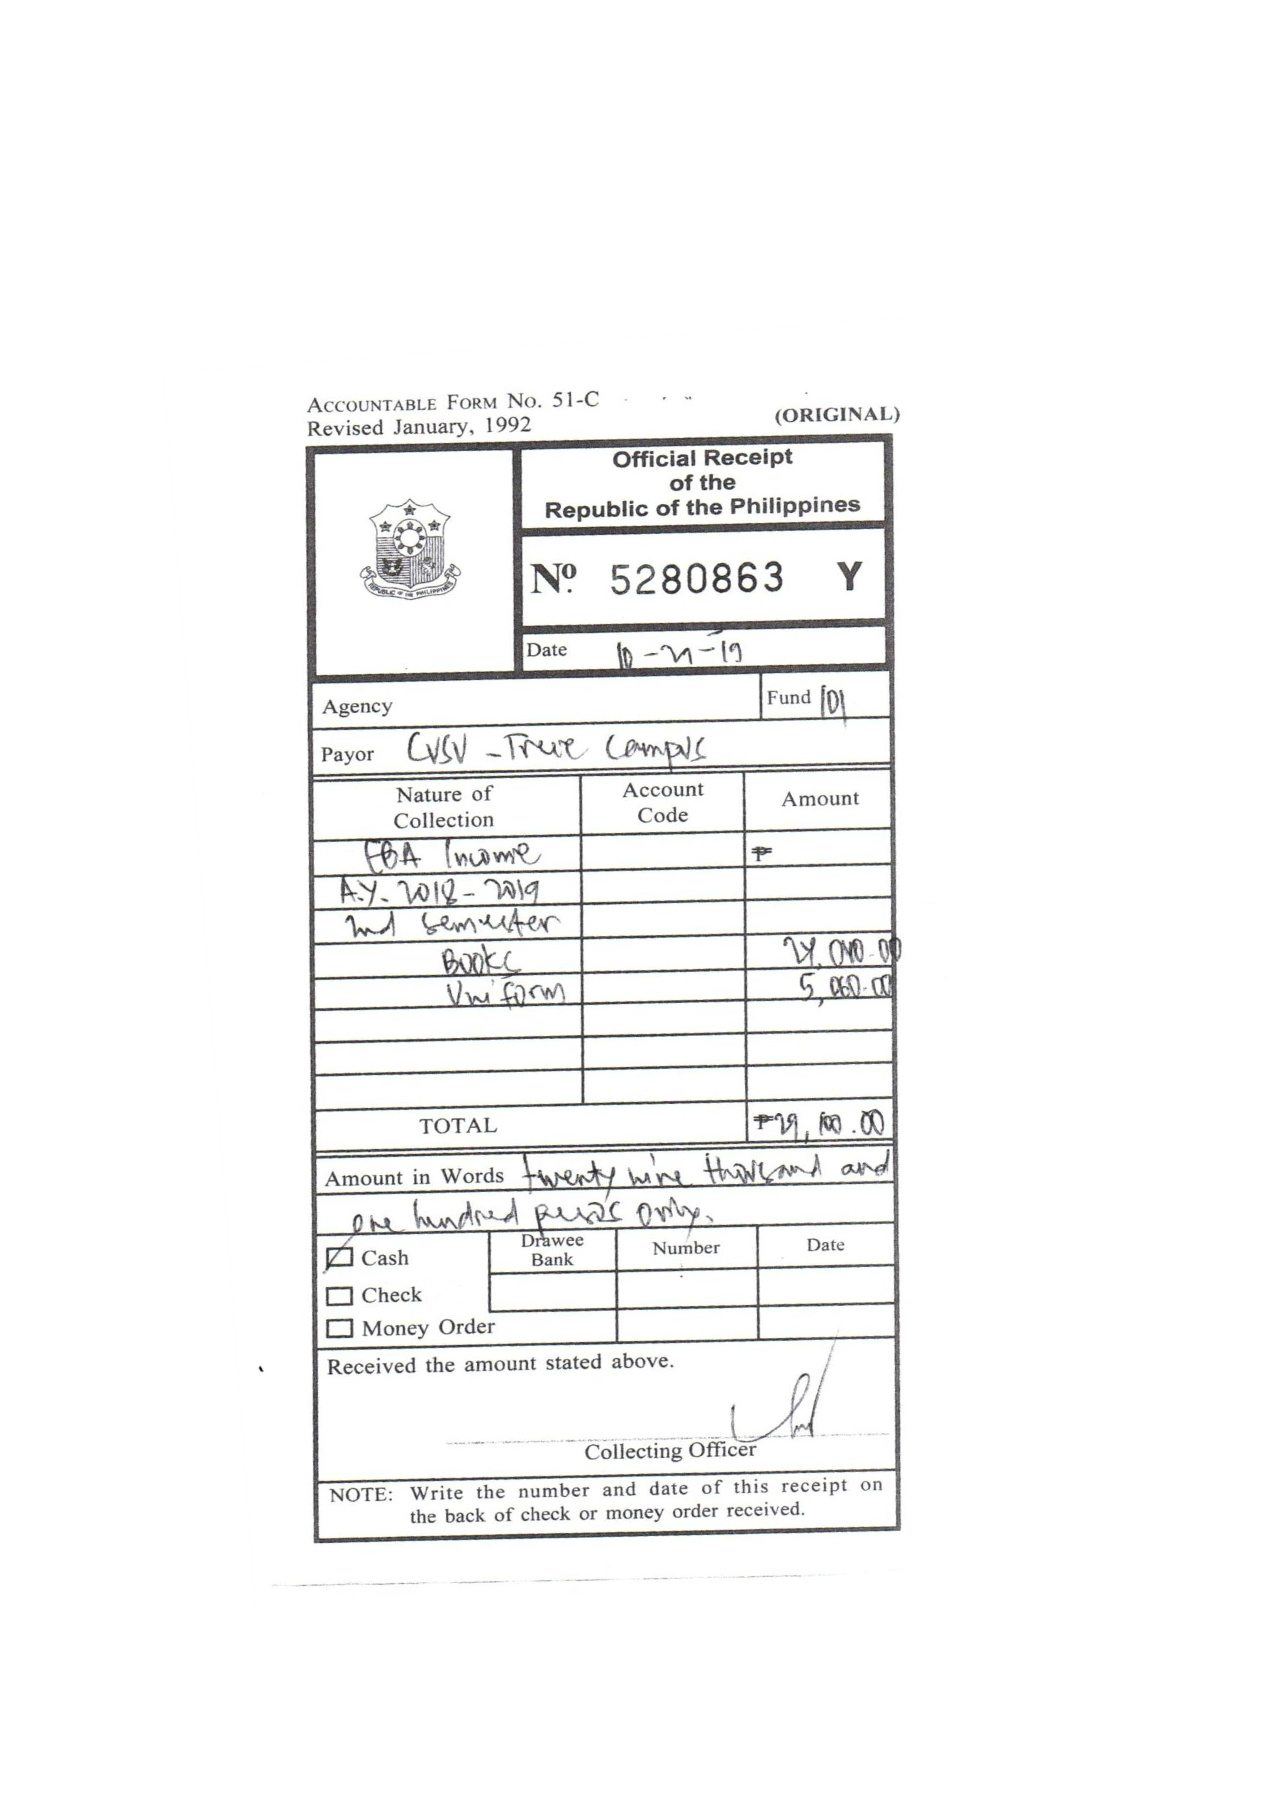 ACCOUNTABLE FORM No. 51-C
Revised January, 1992
(ORIGINAL)
Official Receipt
of the
Republic of the Philippines
REPUBLIC OF THE PHILIPPINES
Nº. 5280863 Y
Date 10-21-19
Agency
Fund 101
Payor CVSU - Trece Campus
Nature of Collection Account Code Amount
EBA Income ₱
A.Y. 2018-2019
2nd Semester
Books 24,040.00
Uniform 5,060.00
TOTAL ₱29,100.00
Amount in Words twenty nine thousand and
one hundred pesos only.
Cash Drawee Bank Number Date
Check
Money Order
Received the amount stated above.
Collecting Officer
NOTE: Write the number and date of this receipt on
the back of check or money order received.